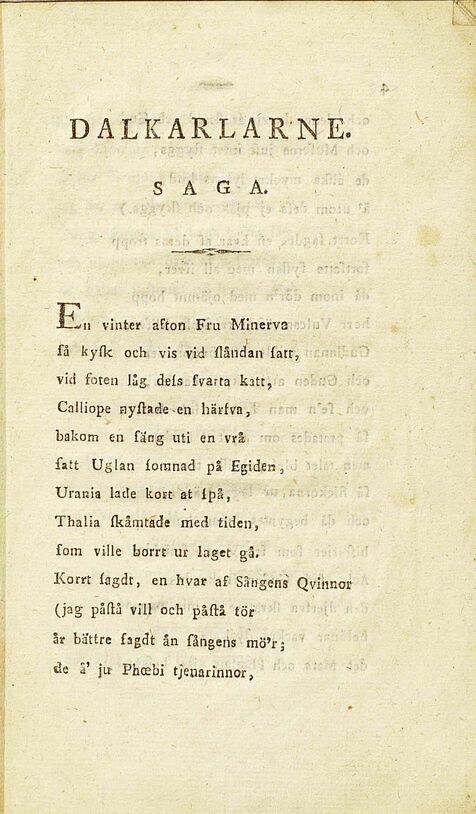 DALKARLARNE.
SAGA.
En vinter afton Fru Minerva
ſå kyſk och vis vid ſlåndan ſatt,
vid foten låg deſs ſvarta katt,
Calliope nyſtade en härfva,
bakom en ſäng uti en vrå
ſatt Uglan ſomnad på Egiden,
Urania lade kort at ſpå,
Thalia ſkämtade med tiden,
ſom ville borrt ur laget gå.
Korrt ſagdt, en hvar af Sångens Qvinnor
(jag påſtå vill och påſtå tör
är bättre ſagdt än ſångens mö'r;
de ä' ju Phœbi tjenarinnor,